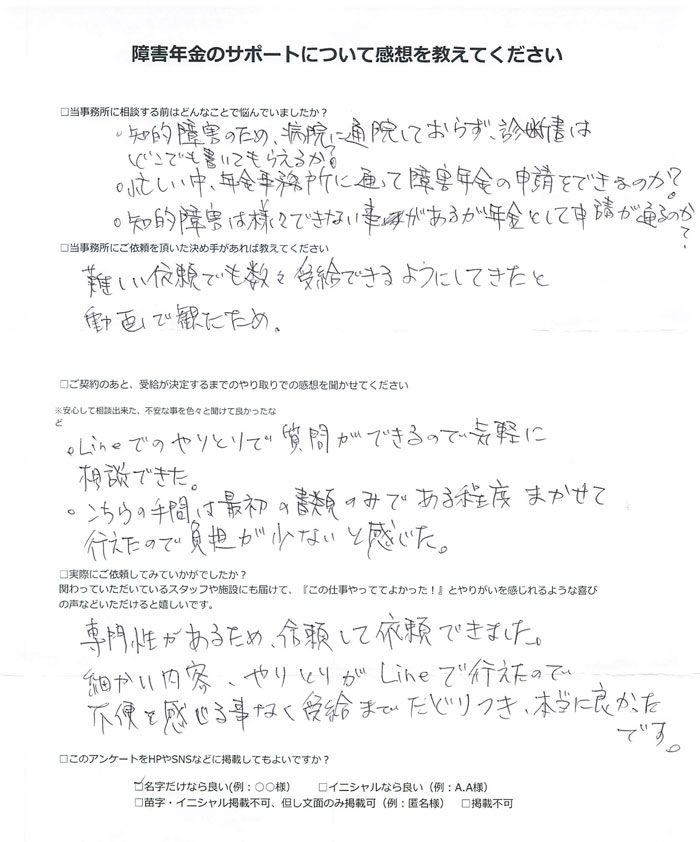 障害年金のサポートについて感想を教えてください
□当事務所に相談する前はどんなことで悩んでいましたか?
・知的障害のため、病院に通院しておらず、診断書は
どこでも書いてもらえるか?
・忙しい中、年金事務所に通って障害年金の申請をできるのか?
・知的障害は様々できない事があるが年金として申請が通るのか
?
□当事務所にご依頼を頂いた決め手があれば教えてください
難しい依頼でも数々受給できるようにしてきたと
動画で観たため。
□ご契約のあと、受給が決定するまでのやり取りでの感想を聞かせてください
※安心して相談出来た。不安な事を色々と聞けて良かったな
ど
・Lineでのやりとりで質問ができるので気軽に
相談できた。
・こちらの手間は最初の書類のみである程度まかせて
行えたので負担が少ないと感じた。
□実際にご依頼してみていかがでしたか?
関わっていただいているスタッフや施設にも届けて、『この仕事やっててよかった!』とやりがいを感じれるような喜び
の声などいただけると嬉しいです。
専門性があるため、信頼して依頼できました。
細かい内容、やりとりがLineで行えたので
不便を感じる事なく受給までたどりつき、本当に良かった
です。
□このアンケートをHPやSNSなどに掲載してもよいですか?
☑名字だけなら良い(例:○○様) □イニシャルなら良い(例:A.A様)
□苗字・イニシャル掲載不可、但し文面のみ掲載可(例:匿名様) □掲載不可